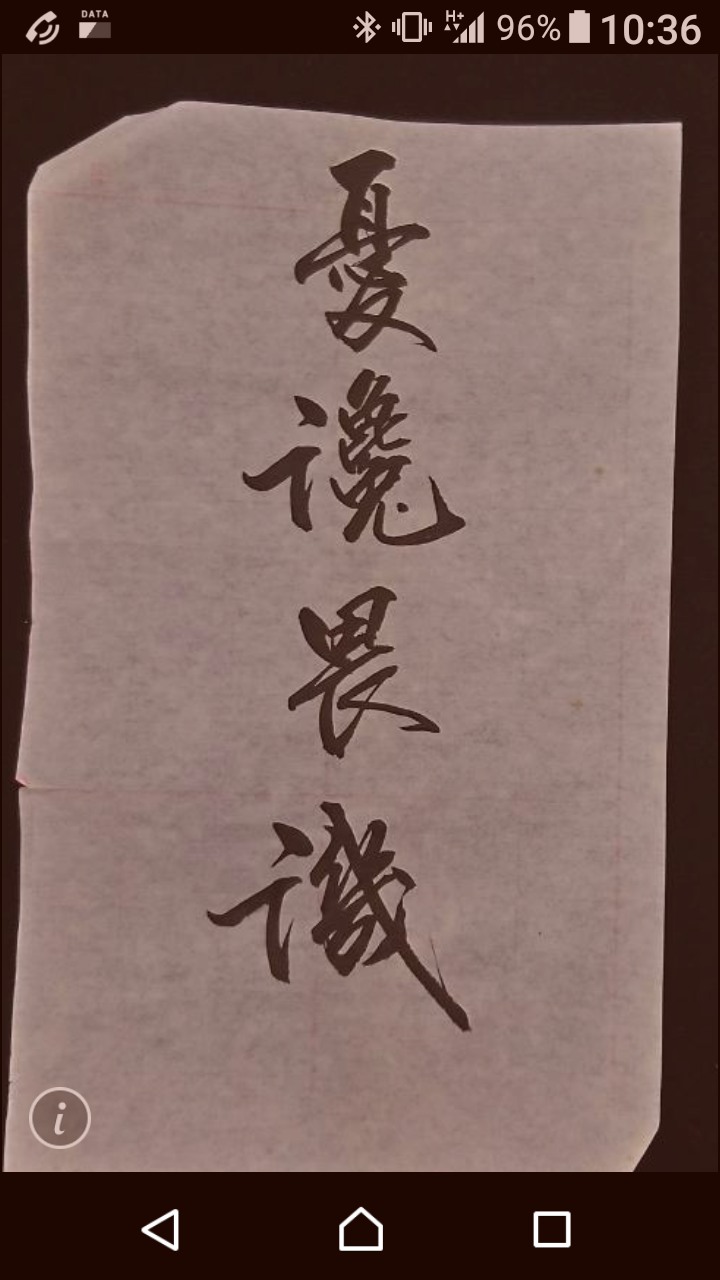 DATA
H+
96%
10:36
憂
讒
畏
譏
i